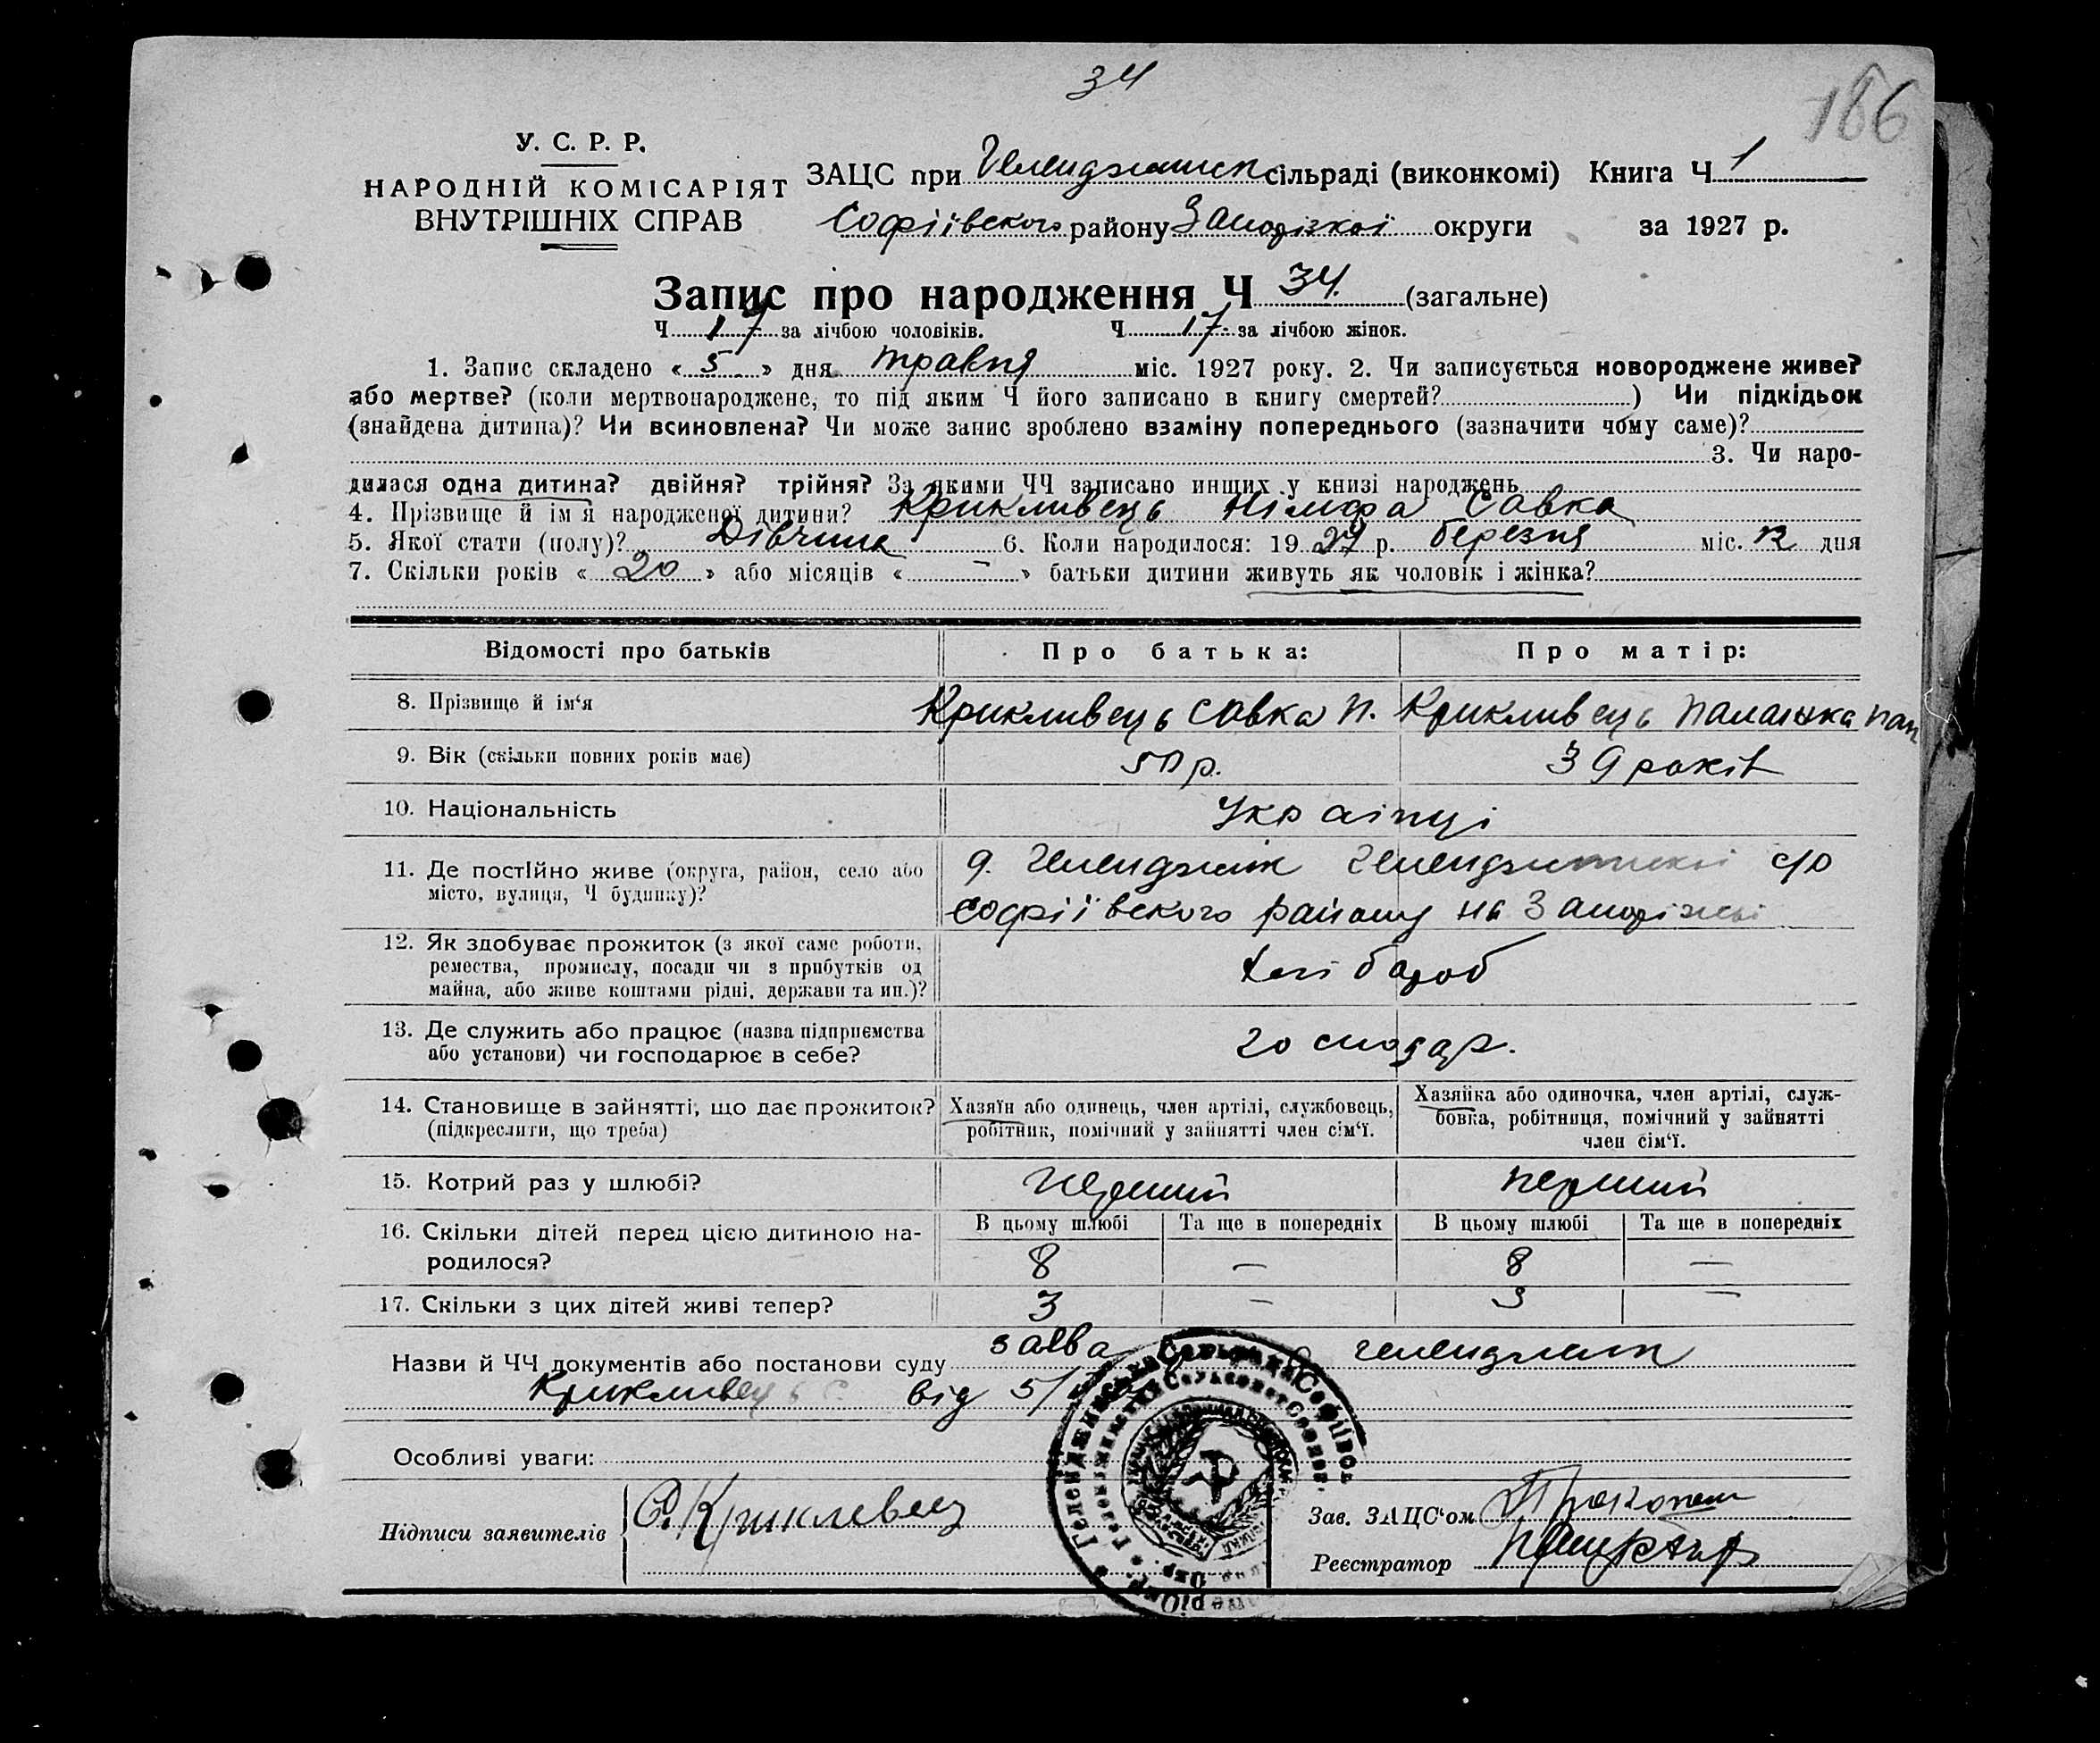 34
186
У. С. Р. Р.
НАРОДНІЙ КОМІСАРІЯТ
ВНУТРІШНІХ СПРАВ
ЗАЦС при Геленджинск сільраді (виконкомі) Книга Ч 1
Софіївского району Запорізкої округи за 1927 р.
Запис про народження Ч 34. (загальне)
Ч 17 за лічбою чоловіків. Ч 17 за лічбою жінок.
1. Запис складено « 5 » дня травня міс. 1927 року. 2. Чи записується новороджене живе?
або мертве? (коли мертвонароджене, то під яким Ч його записано в книгу смертей? ) Чи підкідьок
(знайдена дитина)? Чи всиновлена? Чи може запис зроблено взаміну попереднього (зазначити чому саме)?
3. Чи наро-
дилася одна дитина? двійня? трійня? За якими ЧЧ записано инших у книзі народжень
4. Прізвище й ім'я народженої дитини? Крикливець Німфа Савка
5. Якої стати (полу)? Дівчина 6. Коли народилося: 1927 р. березня міс. 12 дня
7. Скільки років « 20 » або місяців « — » батьки дитини живуть як чоловік і жінка?
Відомості про батьків Про батька: Про матір:
8. Прізвище й ім‘я Крикливець Савка П. Крикливець Палашка Пан
9. Вік (скільки повних років має) 50 р. 39 років
10. Національність Українці
11. Де постійно живе (округа, район, село або
місто, вулиця, Ч будинку)?
Геленджик с/р
Софіївского району на Запоріжжі
12. Як здобуває прожиток (з якої саме роботи,
ремества, промислу, посади чи з прибутків од
майна, або живе коштами рідні, держави та ин.)?
хлібороб
13. Де служить або працює (назва підприємства
або установи) чи господарює в себе?
господар.
14. Становище в зайнятті, що дає прожиток?
(підкреслити, що треба)
Хазяїн або одинець, член артілі, службовець,
робітник, помічний у зайнятті член сім‘ї.
Хазяйка або одиночка, член артілі, служ-
бовка, робітниця, помічний у зайнятті
член сім‘ї.
15. Котрий раз у шлюбі? перший перший
16. Скільки дітей перед цією дитиною на-
родилося?
В цьому шлюбі Та ще в попередніх В цьому шлюбі Та ще в попередніх
8 — 8 —
17. Скільки з цих дітей живі тепер? 3 — 3 —
Назви й ЧЧ документів або постанови суду заява Геленджик
Крикливець С. від 5/
Особливі уваги:
Підписи заявителів С. Крикливец
Зав. ЗАЦС‘ом
Реєстратор